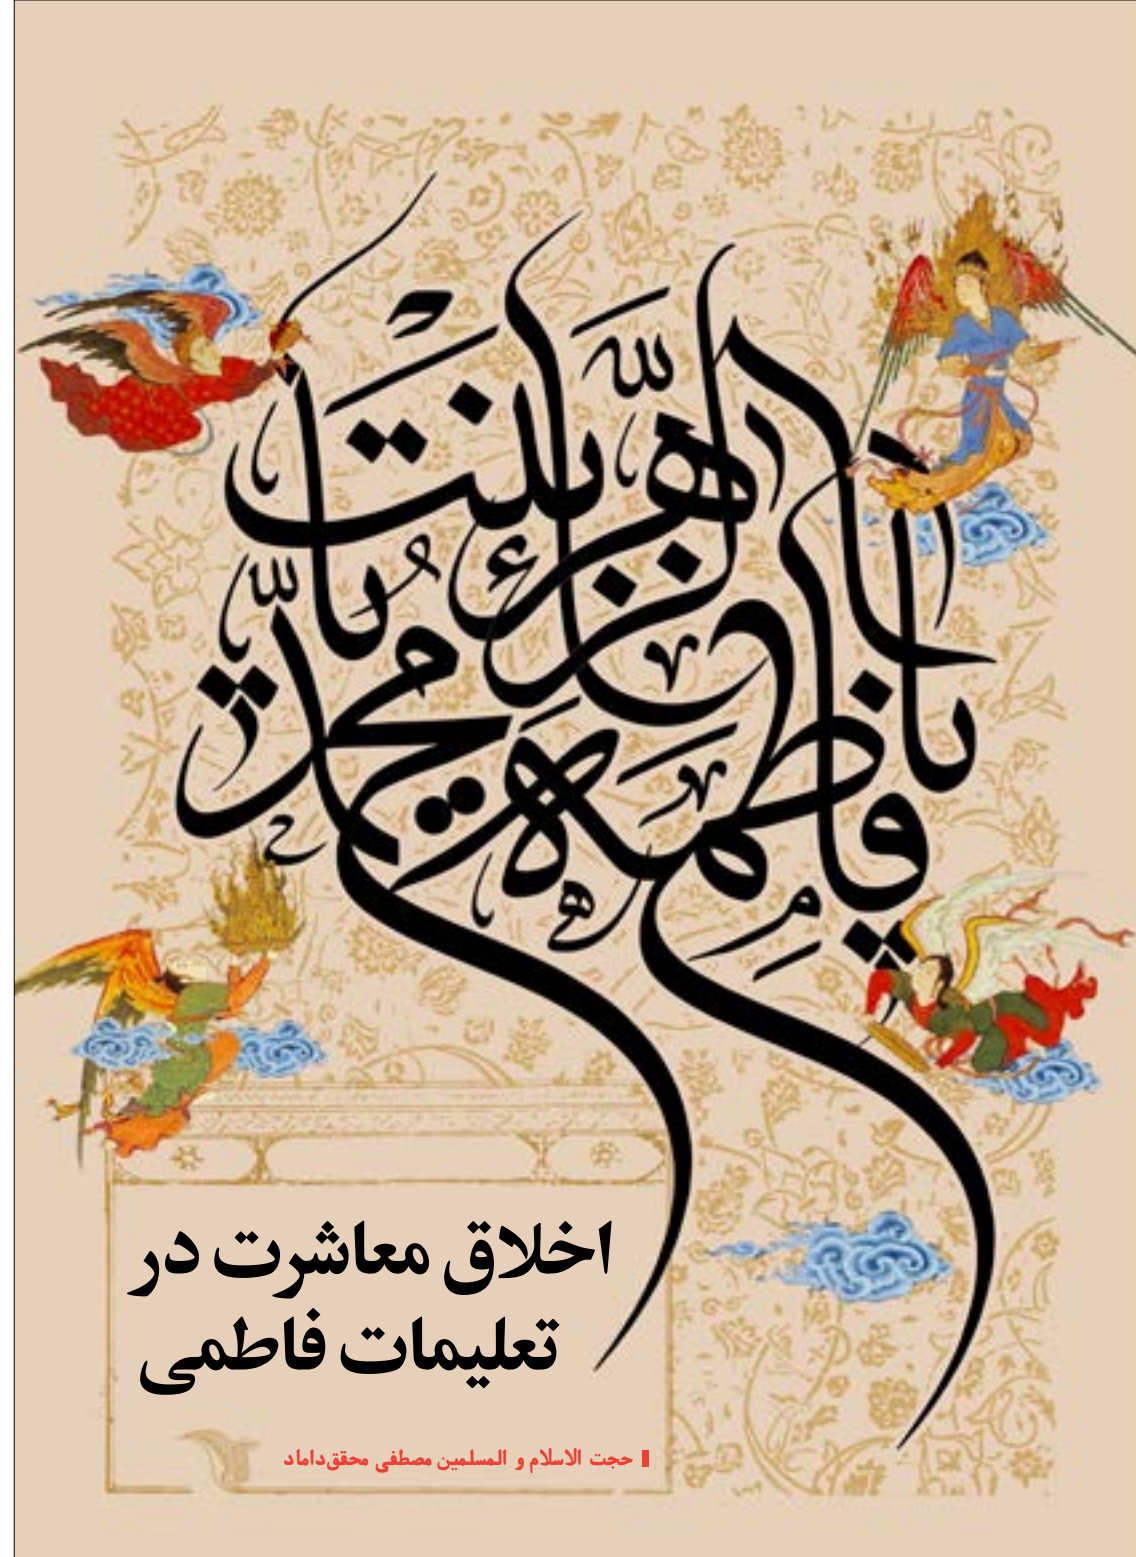 یا فاطمة الزهراء یا بنت محمد
اخلاق معاشرت در
تعلیمات فاطمی
حجت الاسلام و المسلمین مصطفی محقق‌داماد